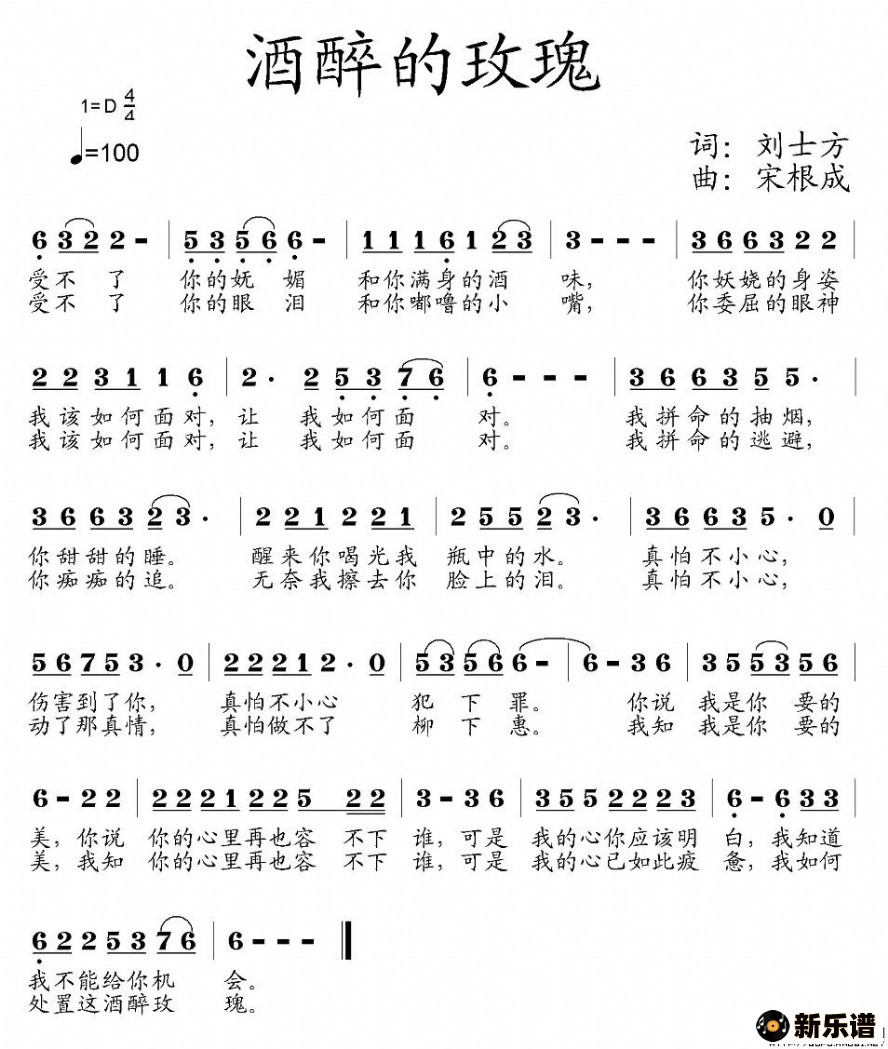 酒醉的玫瑰
1=D 4/4
♩=100
词：刘士方
曲：宋根成
6 3 2 2 - | 5 3 5 6 6 - | 1 1 1 6 1 2 3 | 3 - - - | 3 6 6 3 2 2 |
受不了 你的妩媚 和你满身的酒味， 你妖娆的身姿
受不了 你的眼泪 和你嘟噜的小嘴， 你委屈的眼神
2 2 3 1 1 6 | 2 · 2 5 3 7 6 | 6 - - - | 3 6 6 3 5 5 · |
我该如何面对，让 我如何面对。 我拼命的抽烟，
我该如何面对，让 我如何面对。 我拼命的逃避，
3 6 6 3 2 3 · | 2 2 1 2 2 1 | 2 5 5 2 3 · | 3 6 6 3 5 · 0 |
你甜甜的睡。 醒来你喝光我 瓶中的水。 真怕不小心，
你痴痴的追。 无奈我擦去你 脸上的泪。 真怕不小心，
5 6 7 5 3 · 0 | 2 2 2 1 2 · 0 | 5 3 5 6 6 - | 6 - 3 6 | 3 5 5 3 5 6 |
伤害到了你， 真怕不小心 犯下罪。 你说 我是你要的
动了那真情， 真怕做不了 柳下惠。 我知 我是你要的
6 - 2 2 | 2 2 2 1 2 2 5 2 2 | 3 - 3 6 | 3 5 5 2 2 2 3 | 6 - 6 3 3 |
美，你说 你的心里再也容 不下谁，可是 我的心你应该明白，我知道
美，我知 你的心里再也容 不下谁，可是 我的心已如此疲惫，我如何
6 2 2 5 3 7 6 | 6 - - - ‖
我不能给你机会。
处置这酒醉玫瑰。
新乐谱